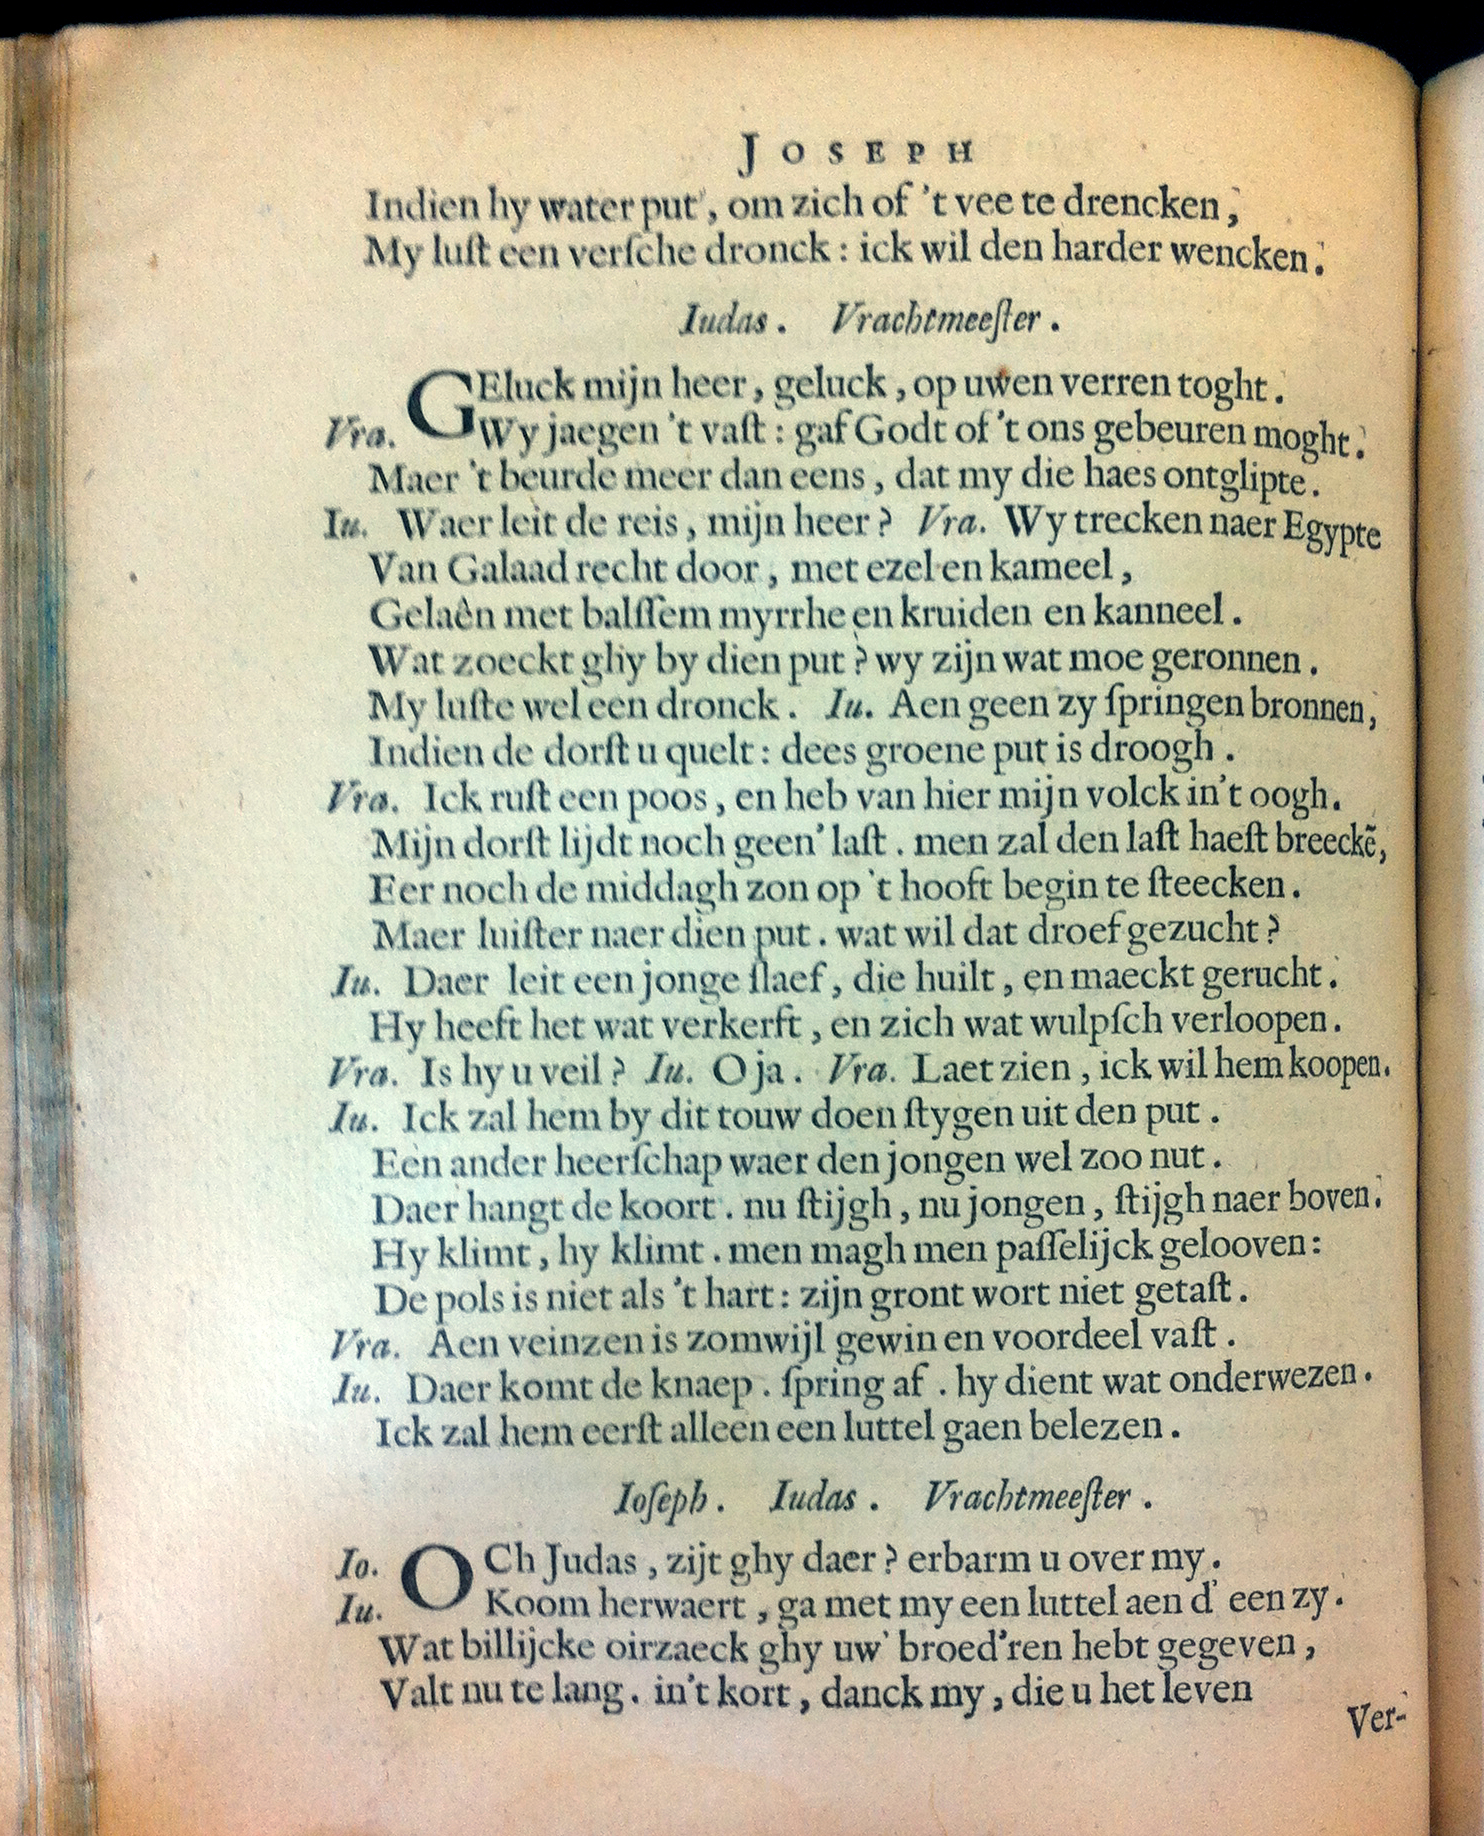 JOSEPH
Indien hy water put, om zich of 't vee te drencken,
My luſt een verſche dronck: ick wil den harder wencken.
Iudas. Vrachtmeeſter.
GEluck mijn heer, geluck, op uwen verren toght.
Vra. Wy jaegen 't vaſt: gaf Godt of 't ons gebeuren moght.
Maer 't beurde meer dan eens, dat my die haes ontglipte.
Iu. Waer leit de reis, mijn heer? Vra. Wy trecken naer Egypte
Van Galaad recht door, met ezel en kameel,
Gelaên met balſſem myrrhe en kruiden en kanneel.
Wat zoeckt ghy by dien put? wy zijn wat moe geronnen.
My luſte wel een dronck. Iu. Aen geen zy ſpringen bronnen,
Indien de dorſt u quelt: dees groene put is droogh.
Vra. Ick ruſt een poos, en heb van hier mijn volck in't oogh.
Mijn dorſt lijdt noch geen' laſt. men zal den laſt haeſt breeckẽ,
Eer noch de middagh zon op 't hooft begin te ſteecken.
Maer luiſter naer dien put. wat wil dat droef gezucht?
Iu. Daer leit een jonge ſlaef, die huilt, en maeckt gerucht.
Hy heeft het wat verkerft, en zich wat wulpſch verloopen.
Vra. Is hy u veil? Iu. O ja. Vra. Laet zien, ick wil hem koopen.
Iu. Ick zal hem by dit touw doen ſtygen uit den put.
Een ander heerſchap waer den jongen wel zoo nut.
Daer hangt de koort. nu ſtijgh, nu jongen, ſtijgh naer boven.
Hy klimt, hy klimt. men magh men paſſelijck gelooven:
De pols is niet als 't hart: zijn gront wort niet getaſt.
Vra. Aen veinzen is zomwijl gewin en voordeel vaſt.
Iu. Daer komt de knaep. ſpring af. hy dient wat onderwezen.
Ick zal hem eerſt alleen een luttel gaen belezen.
Ioſeph. Iudas. Vrachtmeeſter.
Io. OCh Judas, zijt ghy daer? erbarm u over my.
Iu. Koom herwaert, ga met my een luttel aen d' een zy.
Wat billijcke oirzaeck ghy uw' broed'ren hebt gegeven,
Valt nu te lang. in't kort, danck my, die u het leven
Ver-